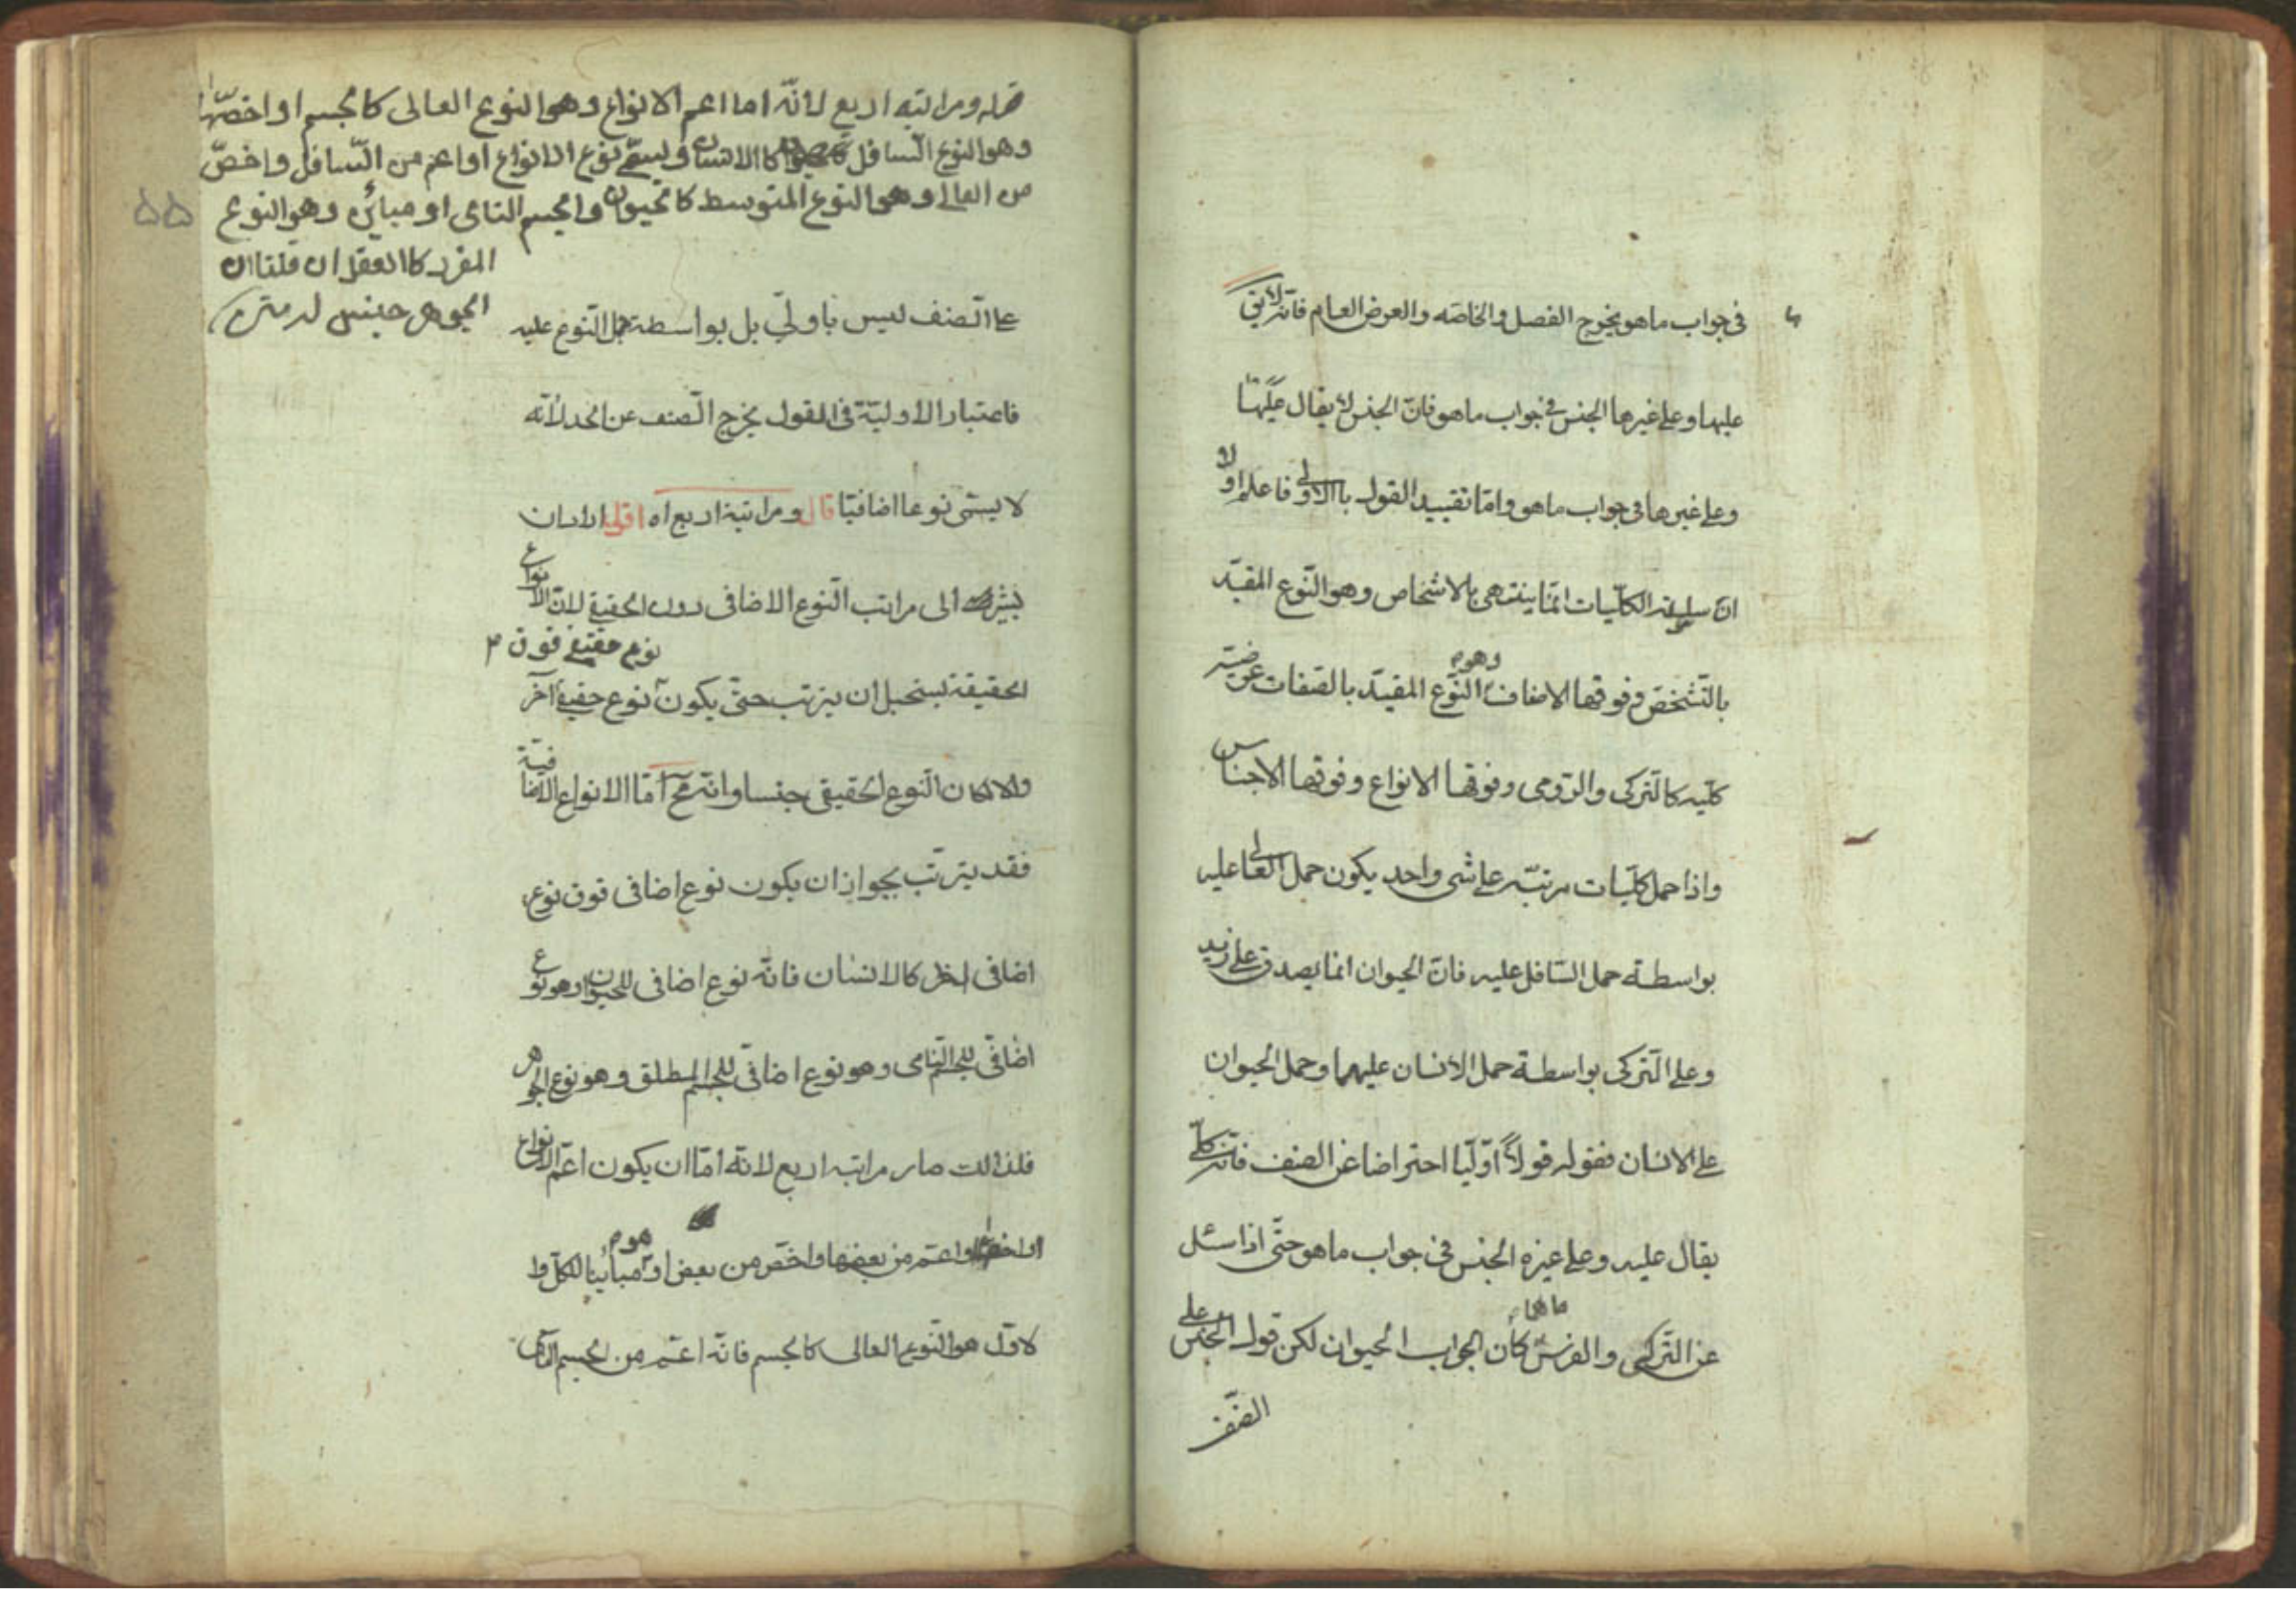 في جواب ماهو يخرج الفصل والخاصه والعرض العام فانه لايق
عليها وعلى غيرها الجنس في جواب ماهو فانّ الجنس لا يقال عليها
وعلى غيرها في جواب ماهو وامّا تقييد القول بالاولى فاعلم اولا
انّ سلسلة الكلّيات انّما ينتهى بالاشخاص وهو النّوع المقيّد
بالتّشخص وفوقها الاصناف وهو م النّوع المقيّد بالصّفات عرضيّة
كلّيه كالتّركى والرّومى وفوقها الانواع وفوقها الاجناس
واذا حمل كلّيات مرتبّه على شى واحد يكون حمل العالى عليه
بواسطة حمل السّافل عليه فانّ الحيوان انّما يصدق على زيد
وعلى التّركى بواسطة حمل الانسان عليهما وحمل الحيوان
على الانسان فقوله قولاً اوّليّا احترازا عن الصنف فانّه كلّى
يقال عليه وعلى غيره الجنس في جواب ماهو حتّى اذا سئل
عن التّركى والفرس ماهما كان الجواب الحيوان لكن قول الجنس على
الصّنف
قوله ومراتبه اربع لانّه اما اعم الانواع وهو النوع العالى كالجسم او اخصّها
وهو النوع السّافل كالانسان ويسمّى نوع الانواع او اعم من السّافل واخصّ
من العالى وهو النوع المتوسط كالحيوان والجسم النامى او مباين وهو النوع
المفرد كالعقل ان قلنا ان
الجوهر جنس له متن
۵۵
على الصّنف ليس باولىّ بل بواسطة حمل النّوع عليه
فاعتبار الاوليّة في القول يخرج الصّنف عن الحد لانّه
لا يسمّى نوعا اضافيّا قال ومراتبه اربع اه اقول اراد ان
يشير الى مراتب النّوع الاضافى دون الحقيقى لانّ الانواع
الحقيقة يستحيل ان يترتب حتّى يكون نوع حقيقى آخر نوع حقيقى فوق م
والا لكان النّوع الحقيقى جنسا وانّه مح امّا الانواع الاضافيّة
فقد يترتّب بجواز ان يكون نوع اضافى فوق نوع
اضافى اخر كالانسان فانّه نوع اضافى للحيوان وهو نوع
اضافىّ للجسم النّامى وهو نوع اضافىّ للجسم المطلق وهو نوع الجوهر
فلذالك صار مراتبه اربع لانّه امّا ان يكون اعمّ الانواع
او اخصّها او اعمّ من بعضها واخصّ من بعض او مباينا للكلّ وا
لاوّل هو النّوع العالى كالجسم فانّه اعمّ من الجسم النّامى